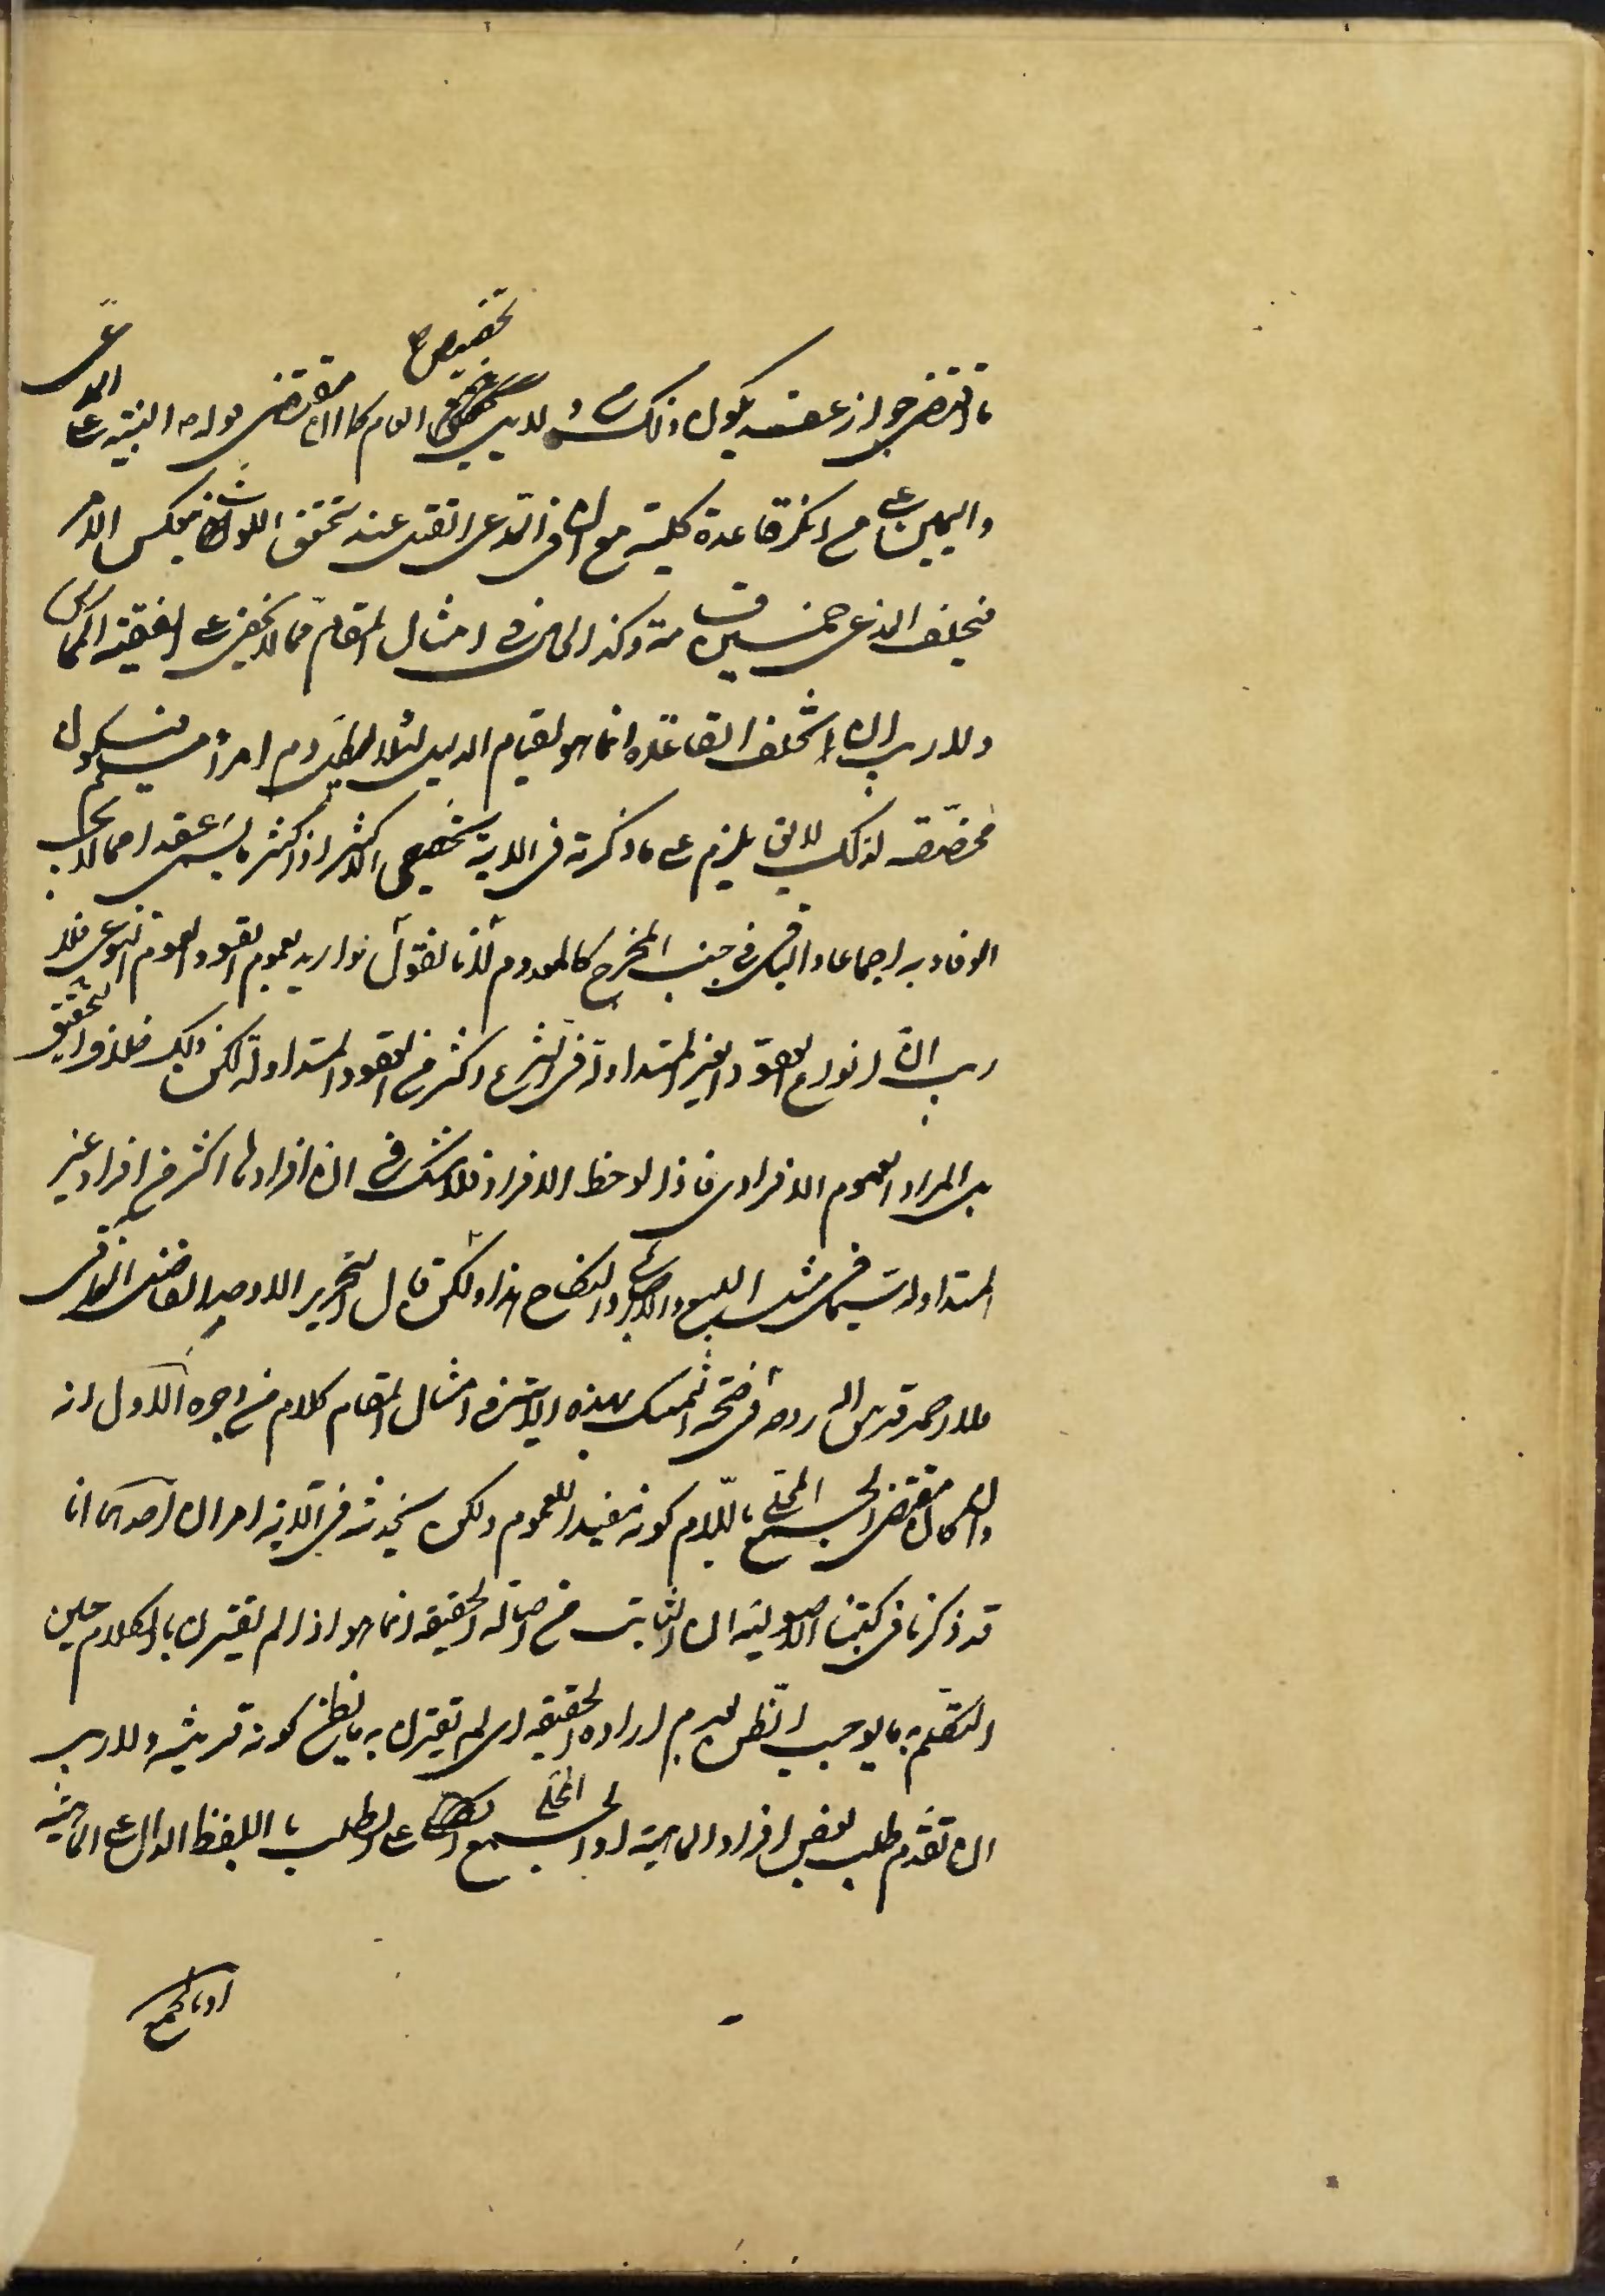 ما اقتضى جواز عقد يكون ذلك من تخصيص العام كما ان مقتضى قوله البينة على المدعي
واليمين على من انكر قاعدة كلية مع ان في المدعي القتل عند تحقق اللوث ينعكس الامر
فيحلف المدعي خمسين مرة وكذا الحال في امثال المقام مما لا يخفى على الفقيه
ولا ريب ان تخلف القاعدة انما هو لقيام الدليل فيكون
مخصصة لذلك لا يقال يلزم على ما ذكرته في الاية تخصيص الاكثر اذ اكثر ما يسمى عقدا مما لا يجب
الوفاء به اجماعا والباقي في جنب المخرج كالمعدوم لأنا نقول لو اريد بعموم العقود العموم النوعي فلا
ريب ان انواع العقود الغير المتداولة في الشرع اكثر من العقود المتداولة لكن ذلك خلاف التحقيق
بل المراد العموم الافرادي فاذا لوحظ الافراد فلا شك في ان افرادها اكثر من افراد غير
المتداولة سيما في مثل البيع والاجارة والنكاح هذا ولكن قال النحرير الاوحد الفاضل النراقي
ملا احمد قدس الله روحه في صحة التمسك بهذه الاية في امثال المقام كلام من وجوه الاول انه
وان كان مقتضى الجمع المحلى باللام كونه مفيدا للعموم ولكن يخدشه في الاية امران احدهما انا
قد ذكرنا في كتبنا الاصولية ان الثابت من اصالة الحقيقة انما هو اذا لم يقترن بالكلام حين
التكلم به ما يوجب الظن بعدم ارادة الحقيقة اي لم يقترن به ما يظن كونه قرينة ولا ريب
ان تقدم طلب بعض افراد الماهية او الجمع المحلى على الطلب باللفظ الدال على الماهية
او بالجمع